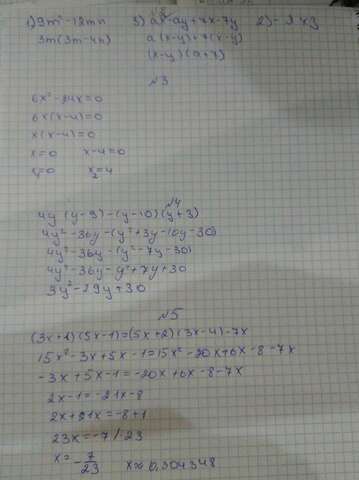 1) 9m² - 12mn 3) ax - ay + 7x - 7y
3m(3m - 4n) a(x-y) + 7(x-y)
(x-y)(a+7)
№3
6x² - 24x = 0
6x(x-4) = 0
x(x-4) = 0
x = 0 x - 4 = 0
x₁ = 0 x₂ = 4
№4
4y(y-9) - (y-10)(y+3)
4y² - 36y - (y² + 3y - 10y - 30)
4y² - 36y - (y² - 7y - 30)
4y² - 36y - y² + 7y + 30
3y² - 29y + 30
№5
(3x+1)(5x-1) = (5x+2)(3x-4) - 7x
15x² - 3x + 5x - 1 = 15x² - 20x + 6x - 8 - 7x
-3x + 5x - 1 = -20x + 6x - 8 - 7x
2x - 1 = -21x - 8
2x + 21x = -8 + 1
23x = -7 /·23
x = -7/23 x ≈ 0,304348